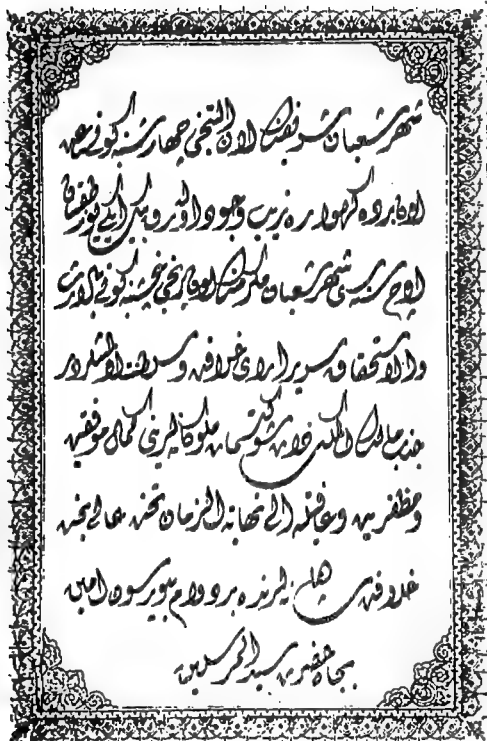 شهر شعبان شریفنك اون التنجی چهارشنبه كونی
اون برده كهواره زیب وجود اولوب و بیك ایكی یوز طقسان
اوچ سنه سی شهر شعبان مكرمنك اون برنجی پنجشنبه كونی بالارث
والاستحقاق سریر ارای خلافت و سلطنت اولمشلردر
جناب مالك الملك ذات شوكتسمات ملوكانه لرینی كمال موفقیت
و مظفریت وعافیتله الی نهایة الزمان تخت عالی بخت
خلافت لرنده بر دوام بیورسون امین
بجاه حضرت سید المرسلین